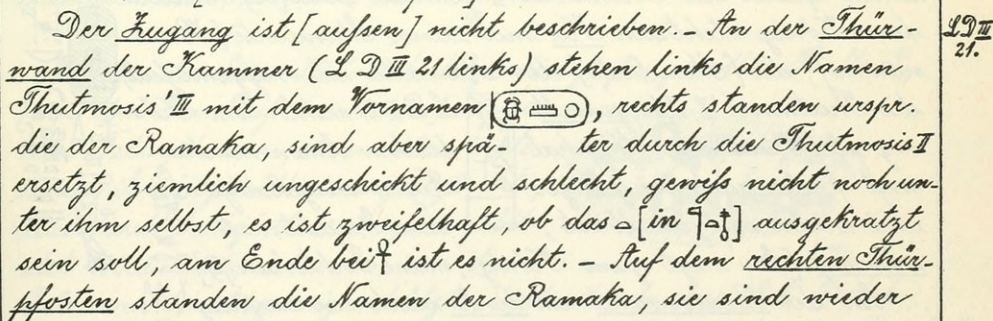 Der Zugang ist [aufsen] nicht beschrieben. – An der Thür-
wand der Kammer (L D III 21 links) stehen links die Namen
Thutmosis' III mit dem Vornamen 𓍹𓆣𓏠𓇳𓍺, rechts standen urspr.
die der Ramaka, sind aber spä- ter durch die Thutmosis II
ersetzt, ziemlich ungeschickt und schlecht, gewifs nicht noch un-
ter ihm selbst, es ist zweifelhaft, ob das 𓏏 [in 𓊹𓏏𓄤] ausgekratzt
sein soll, am Ende bei 𓋹 ist es nicht. – Auf dem rechten Thür-
pfosten standen die Namen der Ramaka, sie sind wieder
L D III
21.